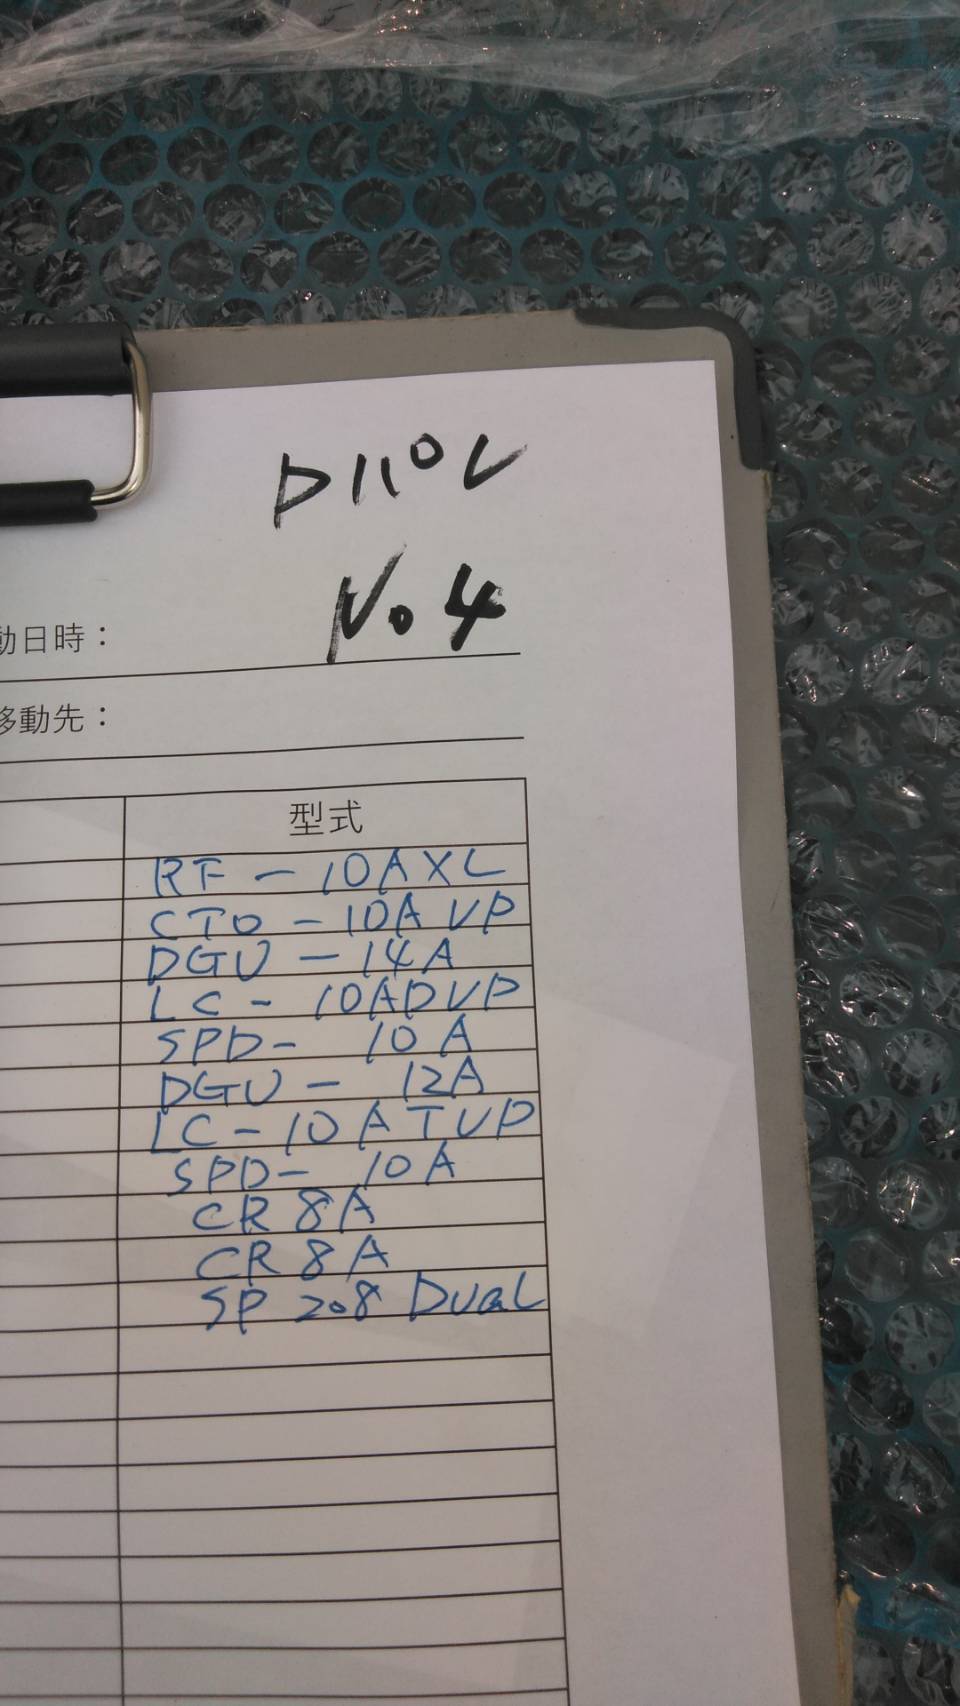 Dパレ
No.4
動日時：
移動先：
型式
RF - 10AXL
CTO - 10A VP
DGU - 14A
LC - 10ADVP
SPD - 10A
DGU - 12A
LC - 10A TVP
SPD - 10A
CR 8A
CR 8A
SP 208 Dual